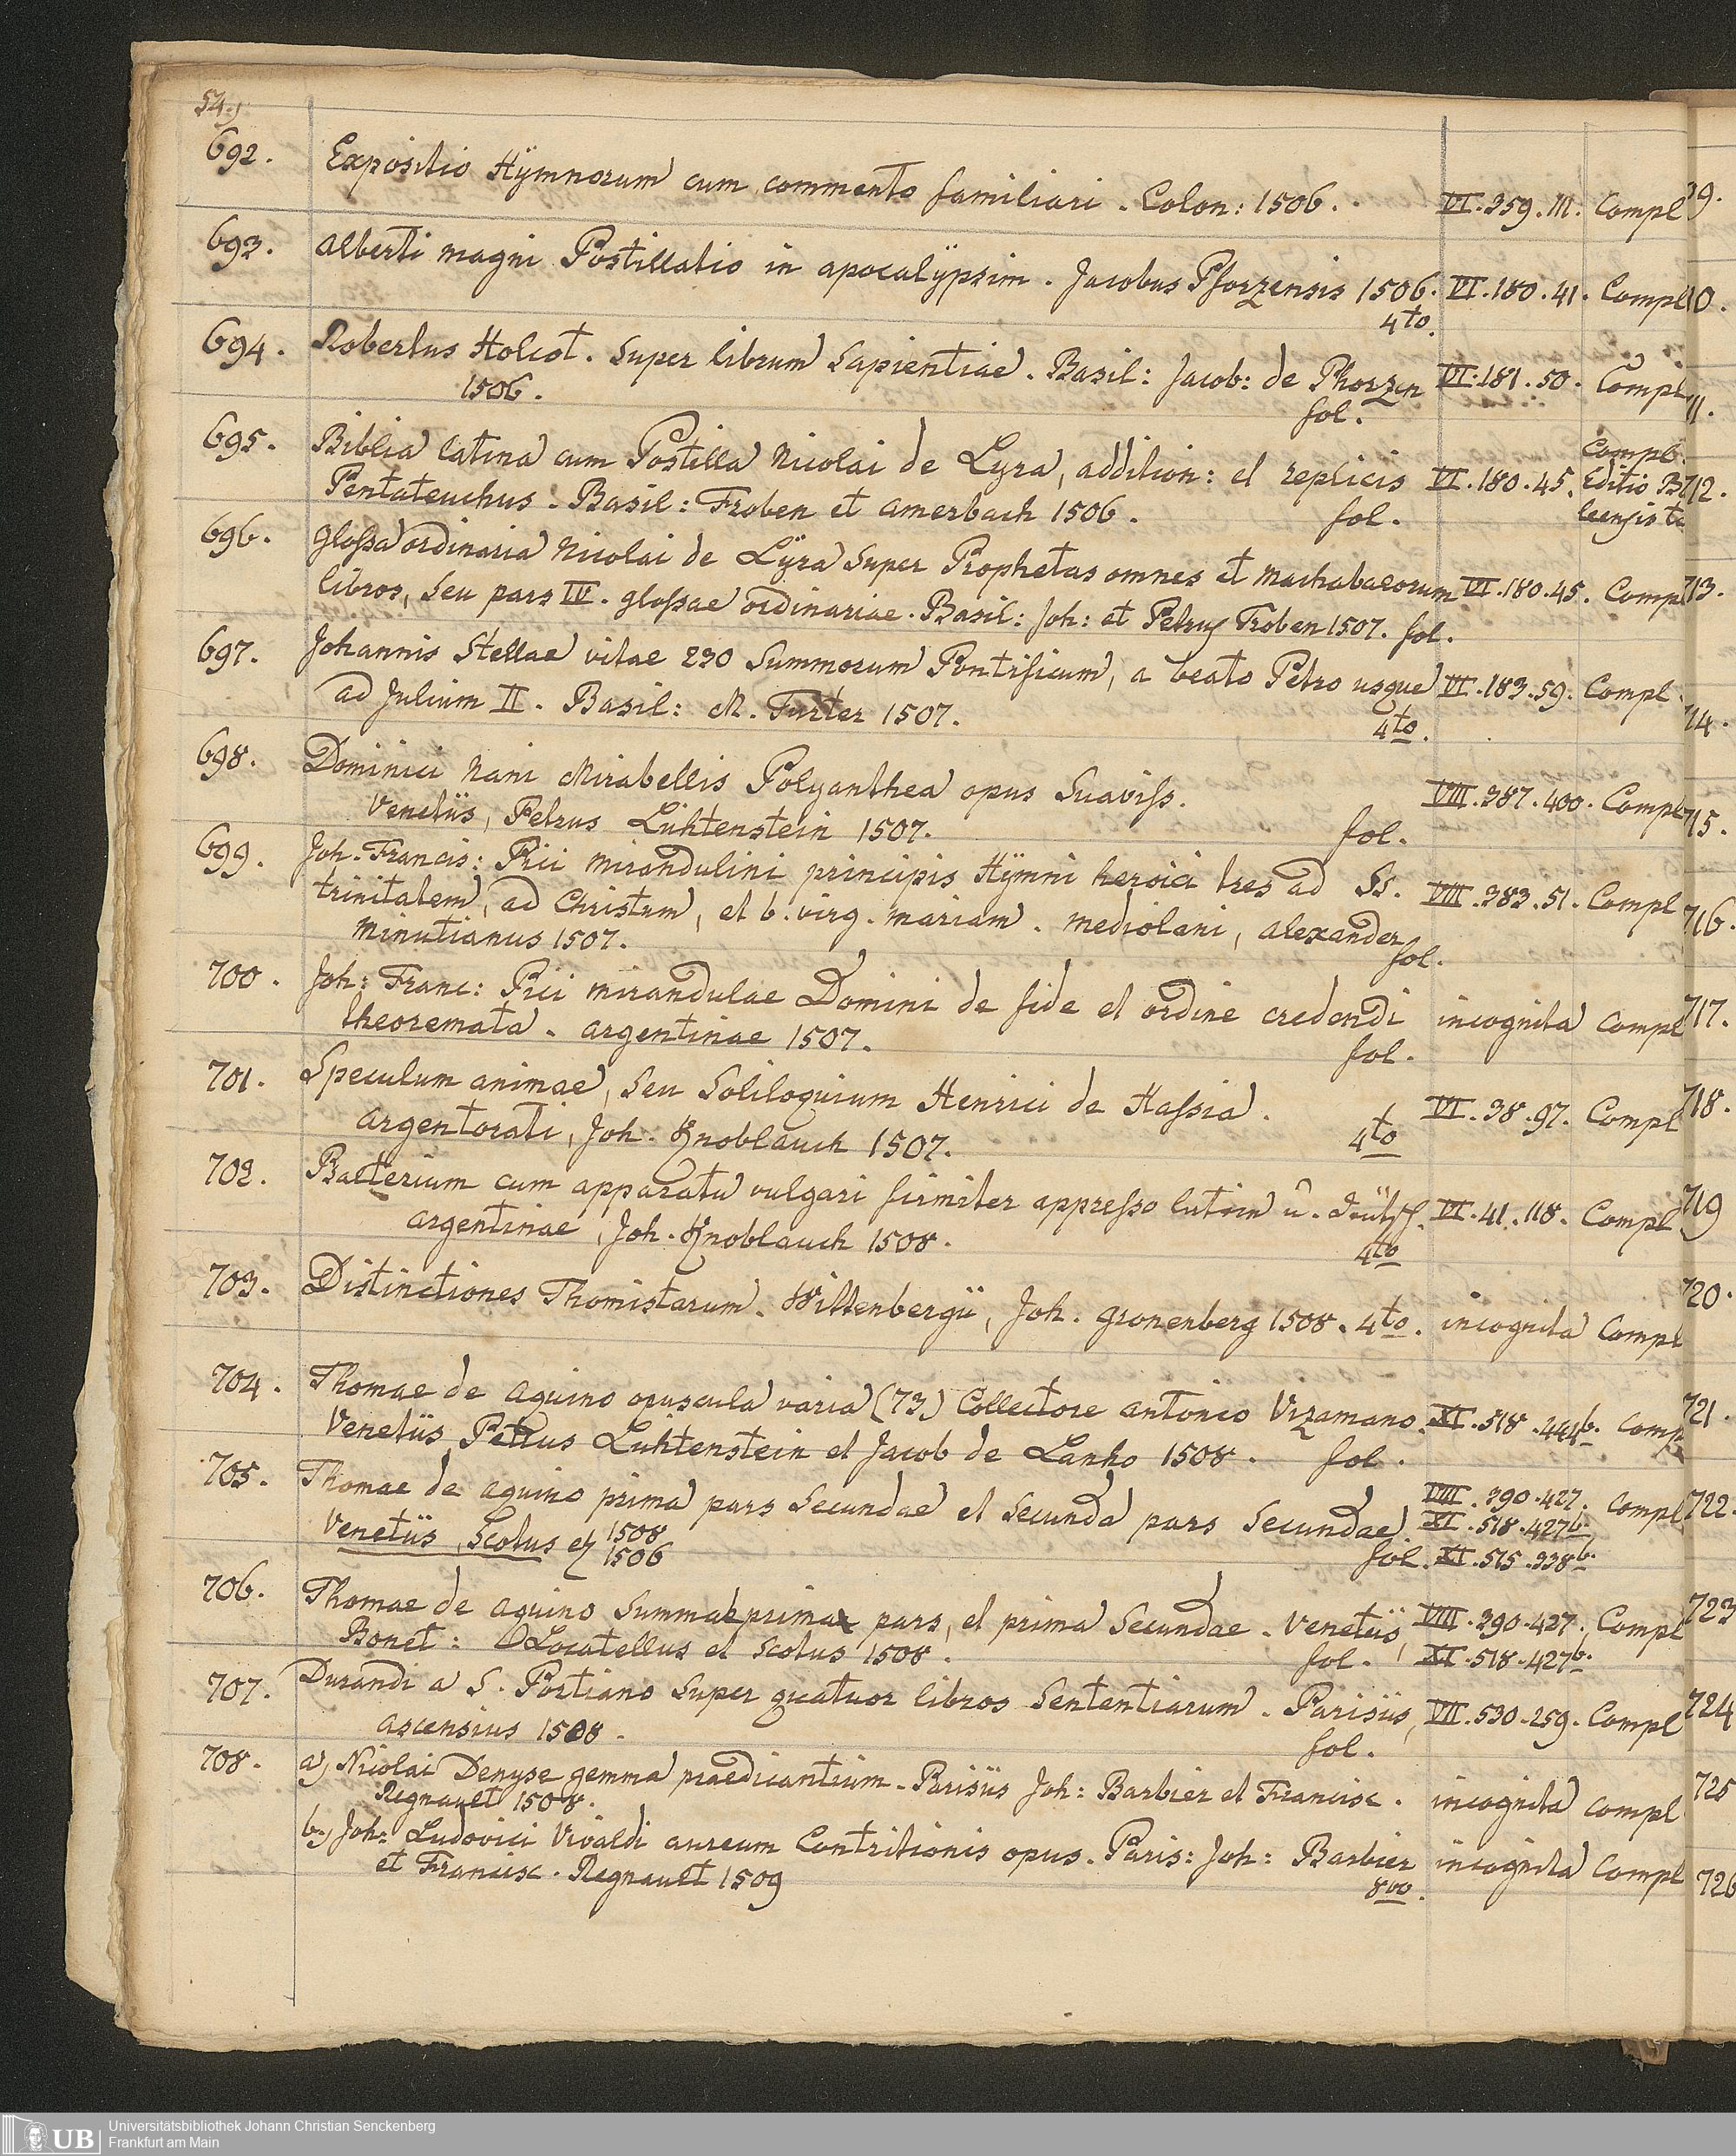 54.)
692. Expositio Hÿmnorum cum commento familiari. Colon: 1506. VI. 359. 111. Compl
693. Alberti magni Postillatio in apocalÿpsim. Jacobus Pforzensis 1506. VI. 180. 41. Compl
4to.
694. Robertus Holcot. Super librum Sapientiae. Basil: Jacob: de Phorzen VI. 181. 50. Compl
1506. fol.
695. Biblia latina cum Postilla Nicolai de Lyra, addition: et replicis VI. 180. 45. Compl. Editio Ba
Pentateuchus. Basil: Froben et Amerbach 1506. fol. leensis
696. Glossa ordinaria Nicolai de Lÿra Super Prophetas omnes et Machabaeorum VI. 180. 45. Compl
libros, seu pars IV. glossae ordinariae. Basil: Joh: et Petrus Froben 1507. fol.
697. Johannis Stellae vitae 230 Summorum Pontificum, a beato Petro usque VI. 183. 59. Compl.
ad Julium II. Basil: M. Furter 1507. 4to.
698. Dominici Nani Mirabellis Polyanthea opus Suaviss. VIII. 387. 400. Compl
Venetiis, Petrus Lichtenstein 1507. fol.
699. Joh. Francis: Pici Mirandulini principis Hÿmni heroici tres ad SS. VIII. 383. 51. Compl
trinitatem, ad Christum, et b. virg. Mariam. Mediolani, Alexander
Minutianus 1507. fol.
700. Joh: Franc: Pici Mirandulae Domini de fide et ordine credendi incognita Compl
theoremata. Argentinae 1507. fol.
701. Speculum animae, seu Soliloquium Henrici de Hassia. VI. 38. 97. Compl
Argentorati, Joh. Knoblauch 1507. 4to
702. Bacterium cum apparatu vulgari firmiter appresso latein u. deutsch. VI. 41. 118. Compl
Argentinae, Joh. Knoblauch 1508. 4to
703. Distinctiones Thomistarum. Wittenbergii, Joh. Gronenberg 1508. 4to. incognita Compl
704. Thomae de Aquino opuscula varia (73) Collectore Antonio Vizamano. XI. 518. 444b. Compl
Venetiis Petrus Lichtenstein et Jacob de Lanho 1508. fol.
705. Thomae de Aquino prima pars Secundae et Secunda pars Secundae VIII. 390. 427. Compl
XI. 518. 427b.
Venetiis, Scotus 1508
1506 fol. XI. 515. 338b.
706. Thomae de Aquino Summae prima pars, et prima Secundae. Venetiis, VIII. 390. 427. Compl
Bonet: Locatellus et Scotus 1508. fol. XI. 518. 427b.
707. Durandi a S. Portiano Super quatuor libros Sententiarum. Parisiis, VII. 530. 259. Compl
Ascensius 1508. fol.
708. a) Nicolai Denyse gemma praedicantium. Parisiis Joh: Barbier et Francisc. incognita compl
Regnault 1508.
b) Joh: Ludovici Vivaldi aureum Contritionis opus. Paris: Joh: Barbier incognita Compl
et Francisc. Regnault 1509 8vo.
9.
10.
11.
712.
713.
714.
715.
716.
717.
718.
719
720.
721.
722.
723
724
725
726
UB
Universitätsbibliothek Johann Christian Senckenberg
Frankfurt am Main